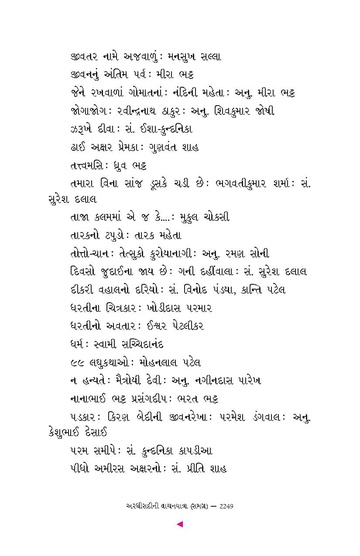 જીવતર નામે અજવાળું : મનસુખ સલ્લા
જીવનનું અંતિમ પર્વ : મીરા ભટ્ટ
જેને રખવાળાં ગોમાતનાં : નંદિની મહેતા : અનુ. મીરા ભટ્ટ
જોગાજોગ : રવીન્દ્રનાથ ઠાકુર : અનુ. શિવકુમાર જોષી
ઝરૂખે દીવા : સં. ઈશા-કુન્દનિકા
ઢાઈ અક્ષર પ્રેમકા : ગુણવંત શાહ
તત્ત્વમસિ : ધ્રુવ ભટ્ટ
તમારા વિના સાંજ ડૂસકે ચડી છે : ભગવતીકુમાર શર્મા : સં.
સુરેશ દલાલ
તાજા કલમમાં એ જ કે.... : મુકુલ ચોકસી
તારકનો ટપુડો : તારક મહેતા
તોત્તો-ચાન : તેત્સુકો કુરોયાનાગી : અનુ. રમણ સોની
દિવસો જુદાઈના જાય છે : ગની દહીંવાલા : સં. સુરેશ દલાલ
દીકરી વહાલનો દરિયો : સં. વિનોદ પંડયા, કાન્તિ પટેલ
ધરતીના ચિત્રકાર : ખોડીદાસ પરમાર
ધરતીનો અવતાર : ઈશ્વર પેટલીકર
ધર્મ : સ્વામી સચ્ચિદાનંદ
૯૯ લઘુકથાઓ : મોહનલાલ પટેલ
ન હન્યતે : મૈત્રેયી દેવી : અનુ. નગીનદાસ પારેખ
નાનાભાઈ ભટ્ટ પ્રસંગદીપ : ભરત ભટ્ટ
પડકાર : કિરણ બેદીની જીવનરેખા : પરમેશ ડંગવાલ : અનુ.
કેશુભાઈ દેસાઈ
પરમ સમીપે : સં. કુન્દનિકા કાપડીઆ
પીધો અમીરસ અક્ષરનો : સં. પ્રીતિ શાહ
અરધીસદીની વાચનયાત્રા (સમગ્ર) — 2249